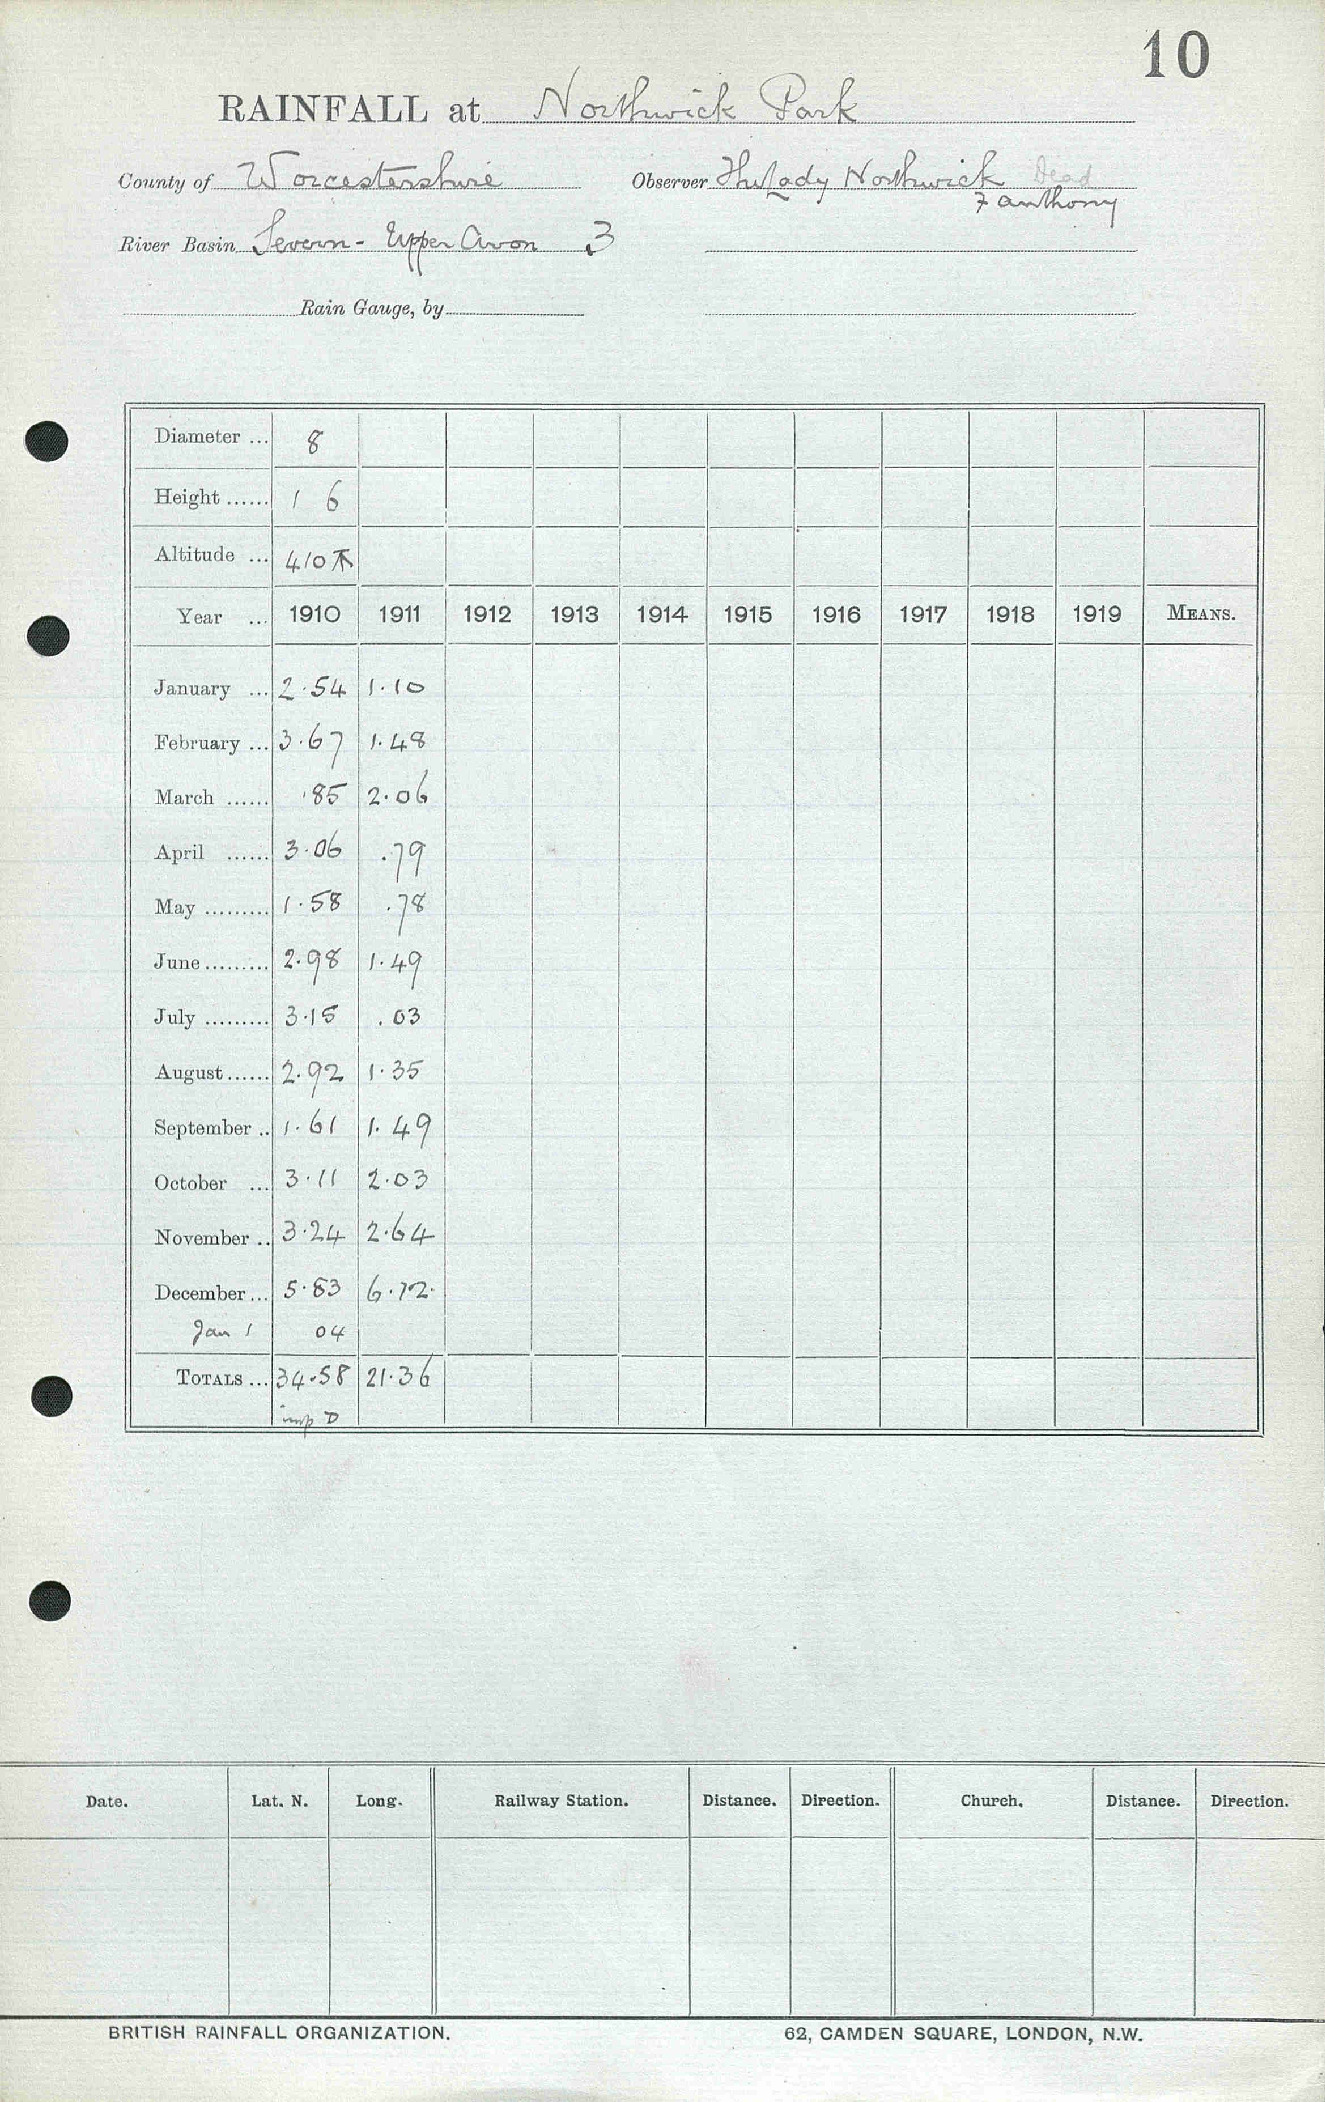 10
RAINFALL at Northwick Park
County of Worcestershire Observer The Lady Northwick Dead
F Anthony
River Basin Severn - Upper Avon 3
Rain Gauge, by
Diameter ... 8
Height ...... 1 6
Altitude ... 410
Year ... 1910 1911 1912 1913 1914 1915 1916 1917 1918 1919 MEANS.
January ... 2.54 1.10
February ... 3.67 1.48
March ...... .85 2.06
April ...... 3.06 .79
May ......... 1.58 .78
June ......... 2.98 1.49
July ......... 3.15 .03
August ...... 2.92 1.35
September .. 1.61 1.49
October ... 3.11 2.03
November .. 3.24 2.64
December ... 5.83 6.12
Jan 1 04
TOTALS ... 34.58 21.36
imp D
Date. Lat. N. Long. Railway Station. Distance. Direction. Church. Distance. Direction.
BRITISH RAINFALL ORGANIZATION. 62, CAMDEN SQUARE, LONDON, N.W.